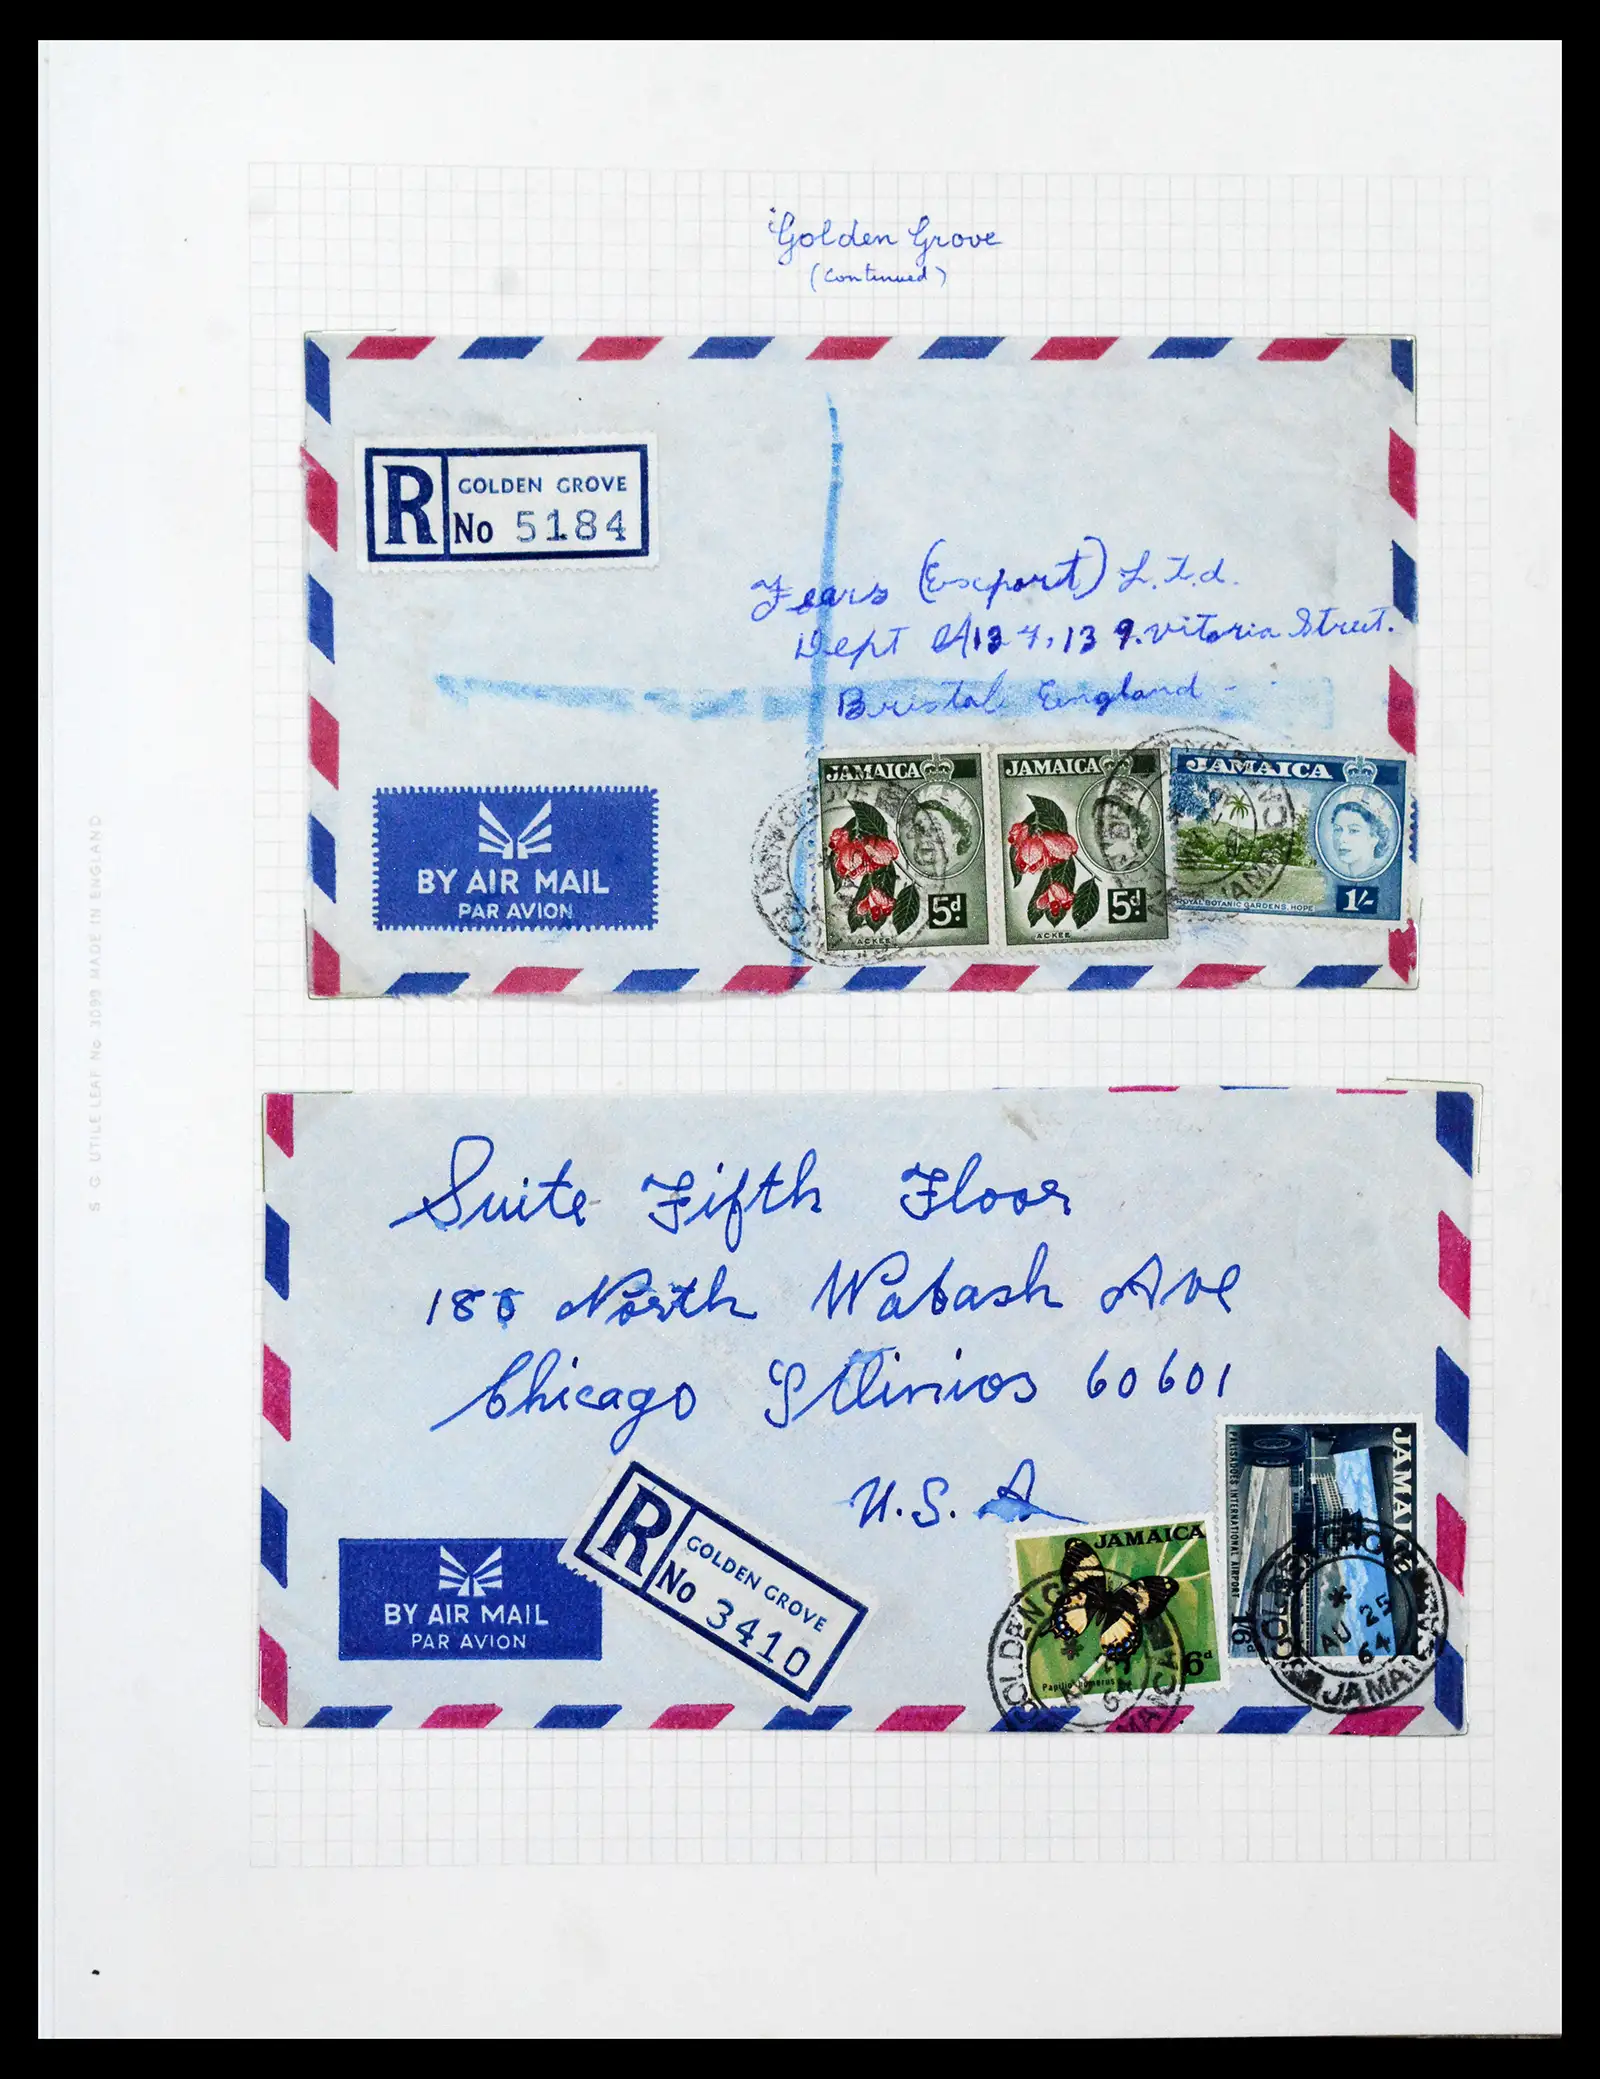 Golden Grove
(continued)
R
GOLDEN GROVE
No 5184
Fears (Export) L.t.d.
Dept A137, 139. Vitoria Street.
Bristol England -
BY AIR MAIL
PAR AVION
JAMAICA
ACKEE
5d.
JAMAICA
ACKEE
5d.
JAMAICA
ROYAL BOTANIC GARDENS, HOPE
1/-
S. G. UTILE LEAF No 3099 MADE IN ENGLAND
Suite Fifth Floor
180 North Wabash Ave
Chicago Illinios 60601
U.S. A
R
GOLDEN GROVE
No 3410
BY AIR MAIL
PAR AVION
JAMAICA
Papilio homerus
6d
GOLDEN
JAMAICA
JAMAICA
PALISADOES INTERNATIONAL AIRPORT
1/6
GOLDEN GROVE
* AU 25
64
JAMAICA